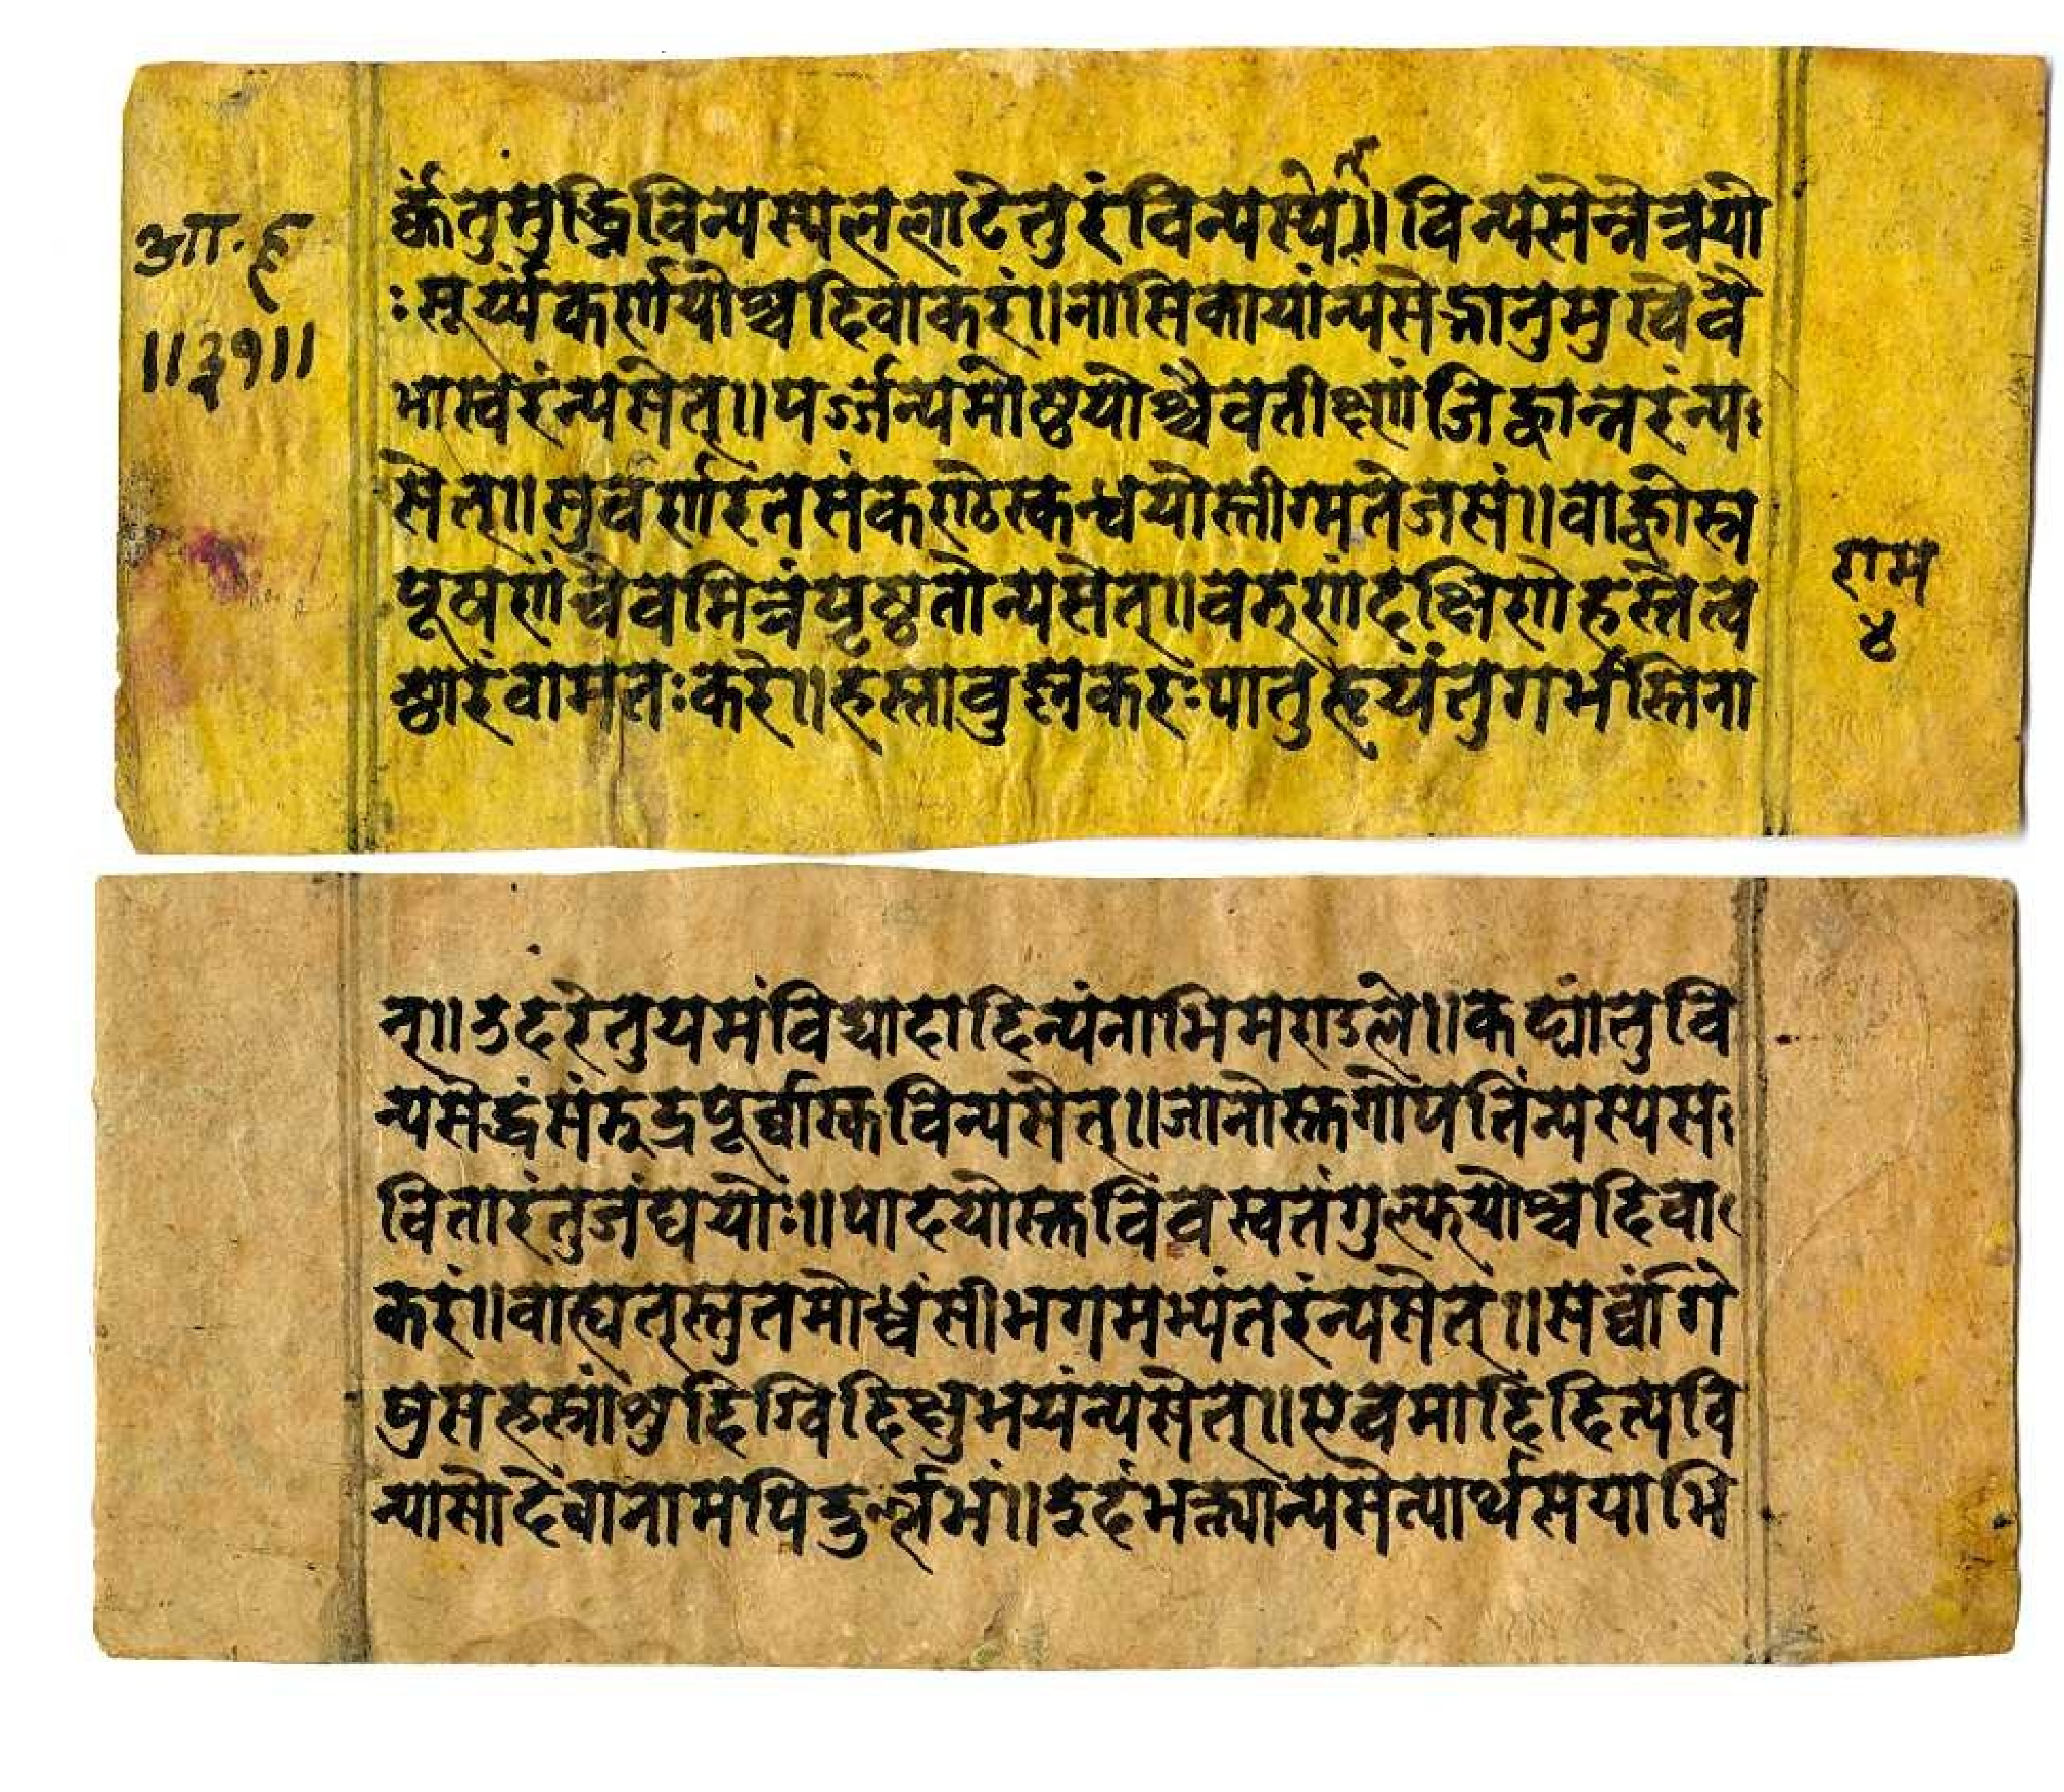 आ·हृ
॥३१॥
र्क्कंतुमुर्द्ध्निविन्यस्यललाटेतुरंविन्यस्येत्॥विन्यसेन्नेत्रयो
ःसूर्य्यंकर्णयोश्चदिवाकरं॥नासिकायांन्यसेद्भानुमुखेवै
भास्करंन्यसेत्॥पर्ज्जन्यमोष्ठयोश्चैवतीक्ष्णंजिह्वान्तरंन्य
सेत्॥सुवर्णरेतसंकण्ठेस्कन्धयोस्तीग्मतेजसं॥वाह्वोस्तु
पूषणंचैवमित्रंपृष्ठतोन्यसेत्॥वरुणंदक्षिणेहस्तेत्व
ष्ठारंवामतःकरे॥हस्तावुष्णकरःपातुहृदयंतुगर्भस्तिना
राम
४
न्॥उदरेतुयमंविद्यादादित्यंनाभिमण्डले॥कट्यांतुवि
न्यसेद्धंसंरुद्रपूर्व्वास्तुविन्यसेत्॥जानोस्तुगोपतिंन्यस्यस
वितारंतुजंघयोः॥पादयोस्तुविवस्वतंगुल्फयोश्चदिवा
करं॥वाह्यतस्तुतमोध्वंसीभगमभ्यंतरंन्यसेत्॥सर्व्वांगे
षुसहस्रांशुदिग्विदिक्षुभयंन्यसेत्॥एवमादिदित्यवि
न्यासोदेवानामपिदुर्ल्लभं॥इदंभक्त्यान्यसेत्पार्थसयाभि